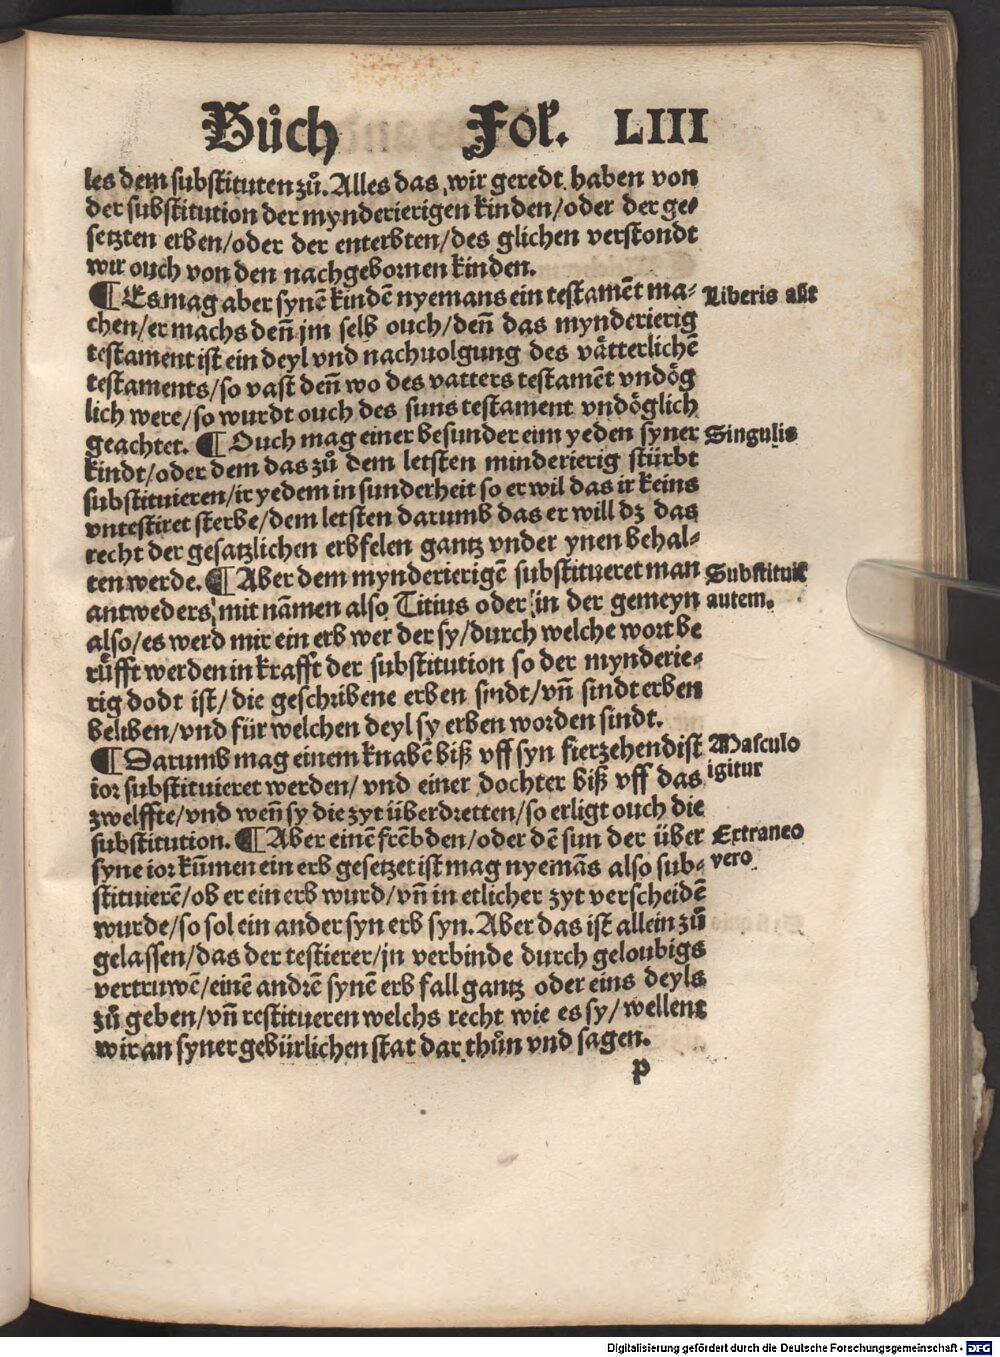 Bůch Fol. LIII
les dem substituten zů. Alles das wir geredt haben von
der substitution der mynderierigen kinden/oder der ge⸗
setzten erben/oder der enterbten/des glichen verstondt
wir ouch von den nachgebornen kinden.
¶ Es mag aber synē kindē nyemans ein testamēt ma⸗
Liberis aūt
chen/er machs deñ jm selb ouch/deñ das mynderierig
testament ist ein deyl vnd nachuolgung des vätterlichē
testaments/so vast deñ wo des vatters testamēt vndög
lich were/so wurdt ouch des suns testament vndöglich
geachtet. ¶ Ouch mag einer besunder eim yeden syner
Singulis
kindt/oder dem das zů dem letsten minderierig stürbt
substituieren/ir yedem in sunderheit so er wil das ir keins
vntestiret sterbe/dem letsten darumb das er will dz das
recht der gesatzlichen erbfelen gantz vnder ynen behal⸗
ten werde. ¶ Aber dem mynderierigē substitueret man
Substituit
antweders mit nāmen also Titius oder in der gemeyn
autem.
also/es werd mir ein erb wer der sy/durch welche wort be
rüfft werden in krafft der substitution so der mynderie⸗
rig dodt ist/die geschribene erben sindt/vñ sindt erben
beliben/vnd für welchen deyl sy erben worden sindt.
¶ Darumb mag einem knabē biß vff syn fierzehendist
Masculo
ior substituieret werden/vnd einer dochter biß vff das
igitur
zwelffte/vnd weñ sy die zyt überdretten/so erligt ouch die
substitution. ¶ Aber einē frēbden/oder dē sun der über
Extraneo
syne ior kūmen ein erb gesetzet ist mag nyemās also sub⸗
vero
stituierē/ob er ein erb wurd/vñ in etlicher zyt verscheidē
wurde/so sol ein ander syn erb syn. Aber das ist allein zů
gelassen/das der testierer/jn verbinde durch geloubigs
vertruwē/einē andrē synē erb fall gantz oder eins deyls
zů geben/vñ restitueren welchs recht wie es sy/wellent
wir an syner gebürlichen stat dar thůn vnd sagen.
p
Digitalisierung gefördert durch die Deutsche Forschungsgemeinschaft - DFG